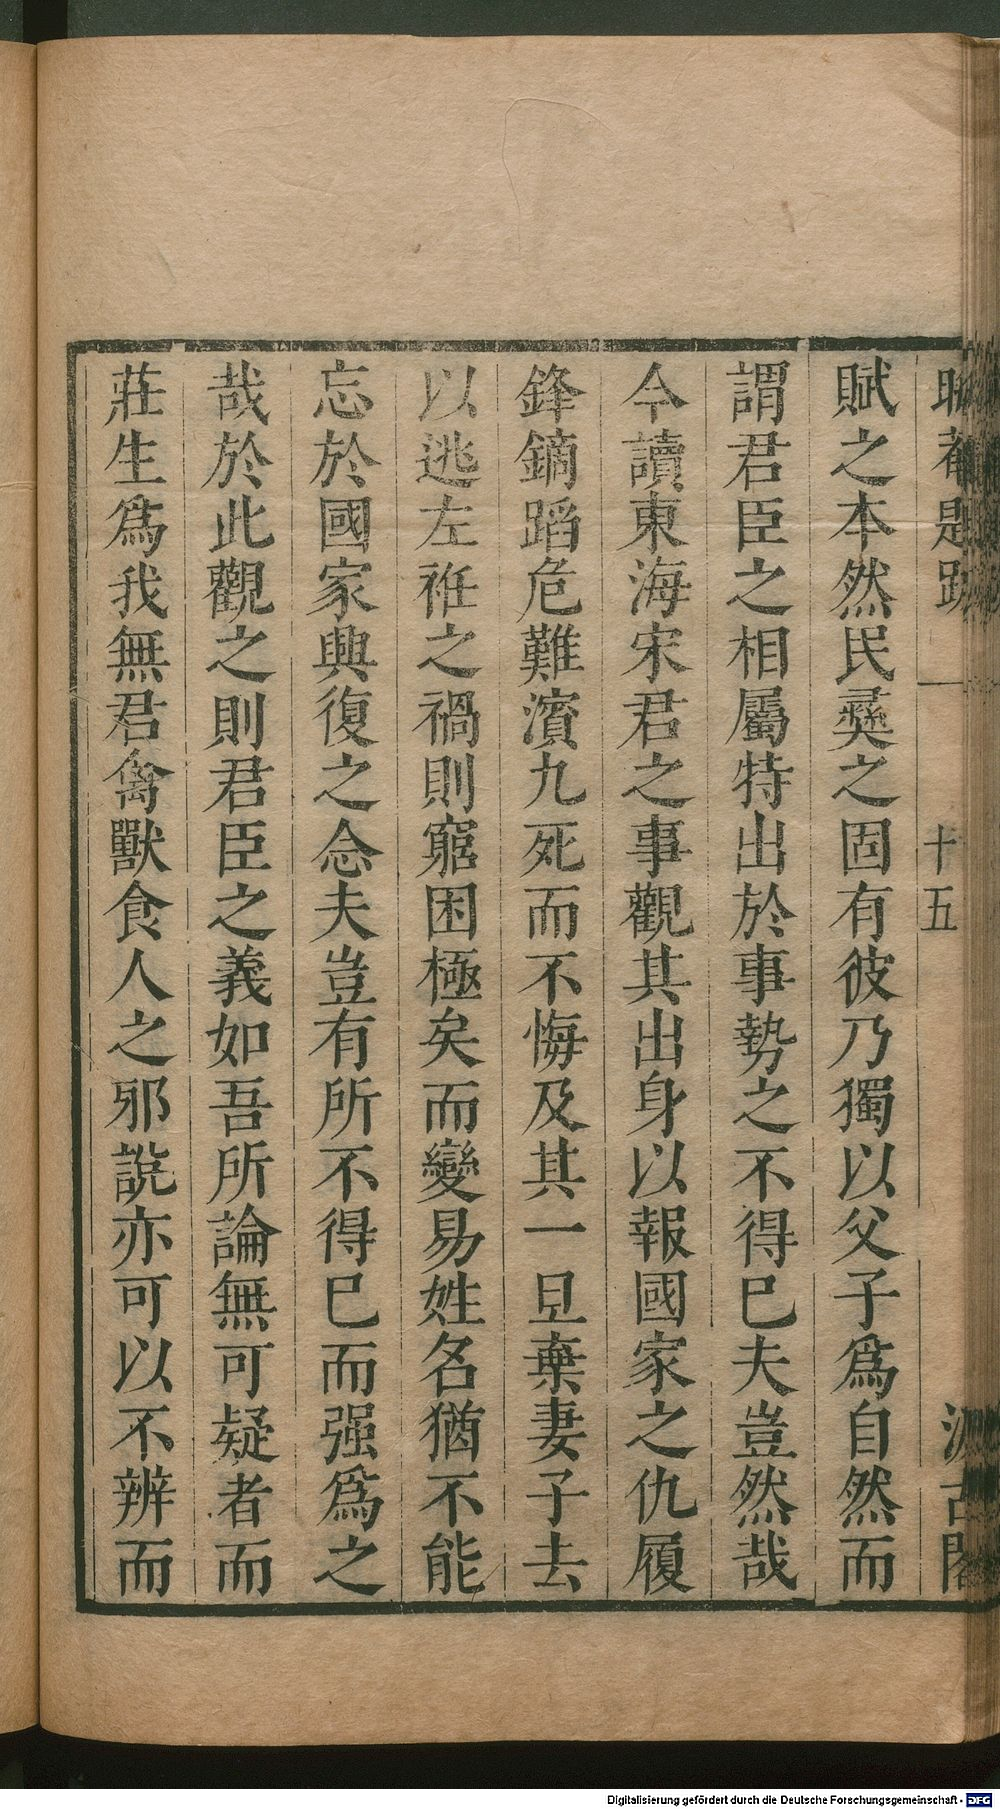 晦菴題跋 一 十五 汲古閣
賦之本然民彛之固有彼乃獨以父子爲自然而
謂君臣之相屬特出於事勢之不得已夫豈然哉
今讀東海宋君之事觀其出身以報國家之仇履
鋒鏑蹈危難濵九死而不悔及其一旦棄妻子去
以逃左袵之禍則窮困極矣而變易姓名猶不能
忘於國家興復之念夫豈有所不得已而强爲之
哉於此觀之則君臣之義如吾所論無可疑者而
莊生爲我無君禽獸食人之邪說亦可以不辨而
Digitalisierung gefördert durch die Deutsche Forschungsgemeinschaft - DFG